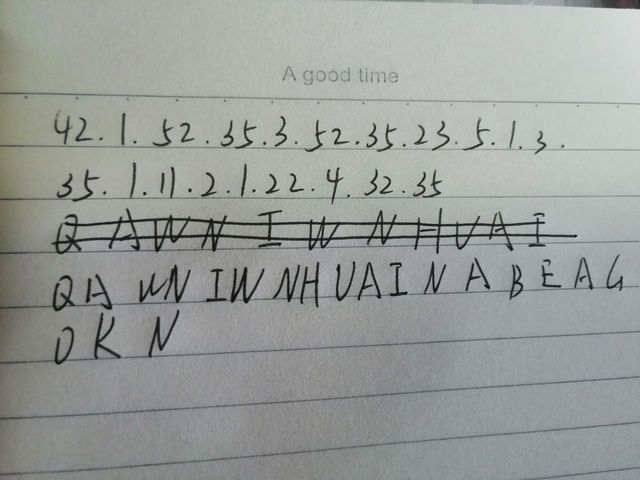 A good time
42.1.52.35.3.52.35.23.5.1.3.
35.1.11.2.1.22.4.32.35
Q A W N I W N H U A I
QA WN IW NH UAI N A B E A G
O K N